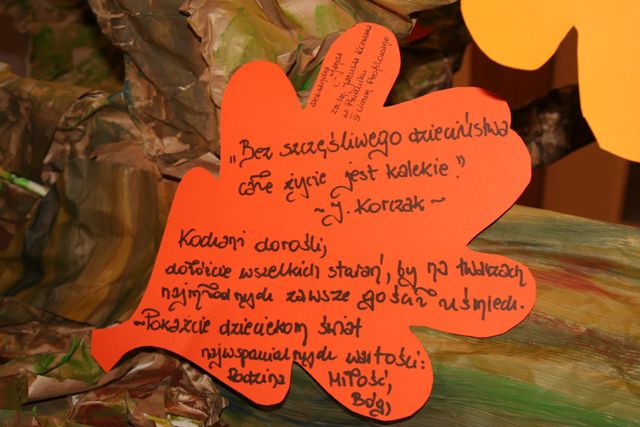 Aleksandra
ZS. im. Janusza Korczaka
w Prudniku
II Liceum Profilowane
„Bez szczęśliwego dzieciństwa
całe życie jest kalekie."
~J. Korczak~
Kochani dorośli,
dołóżcie wszelkich starań, by na twarzach
najmłodszych zawsze gościł uśmiech.
~Pokażcie dzieciekom świat
najwspanialszych wartości:
Rodzina Miłość,
Bóg,